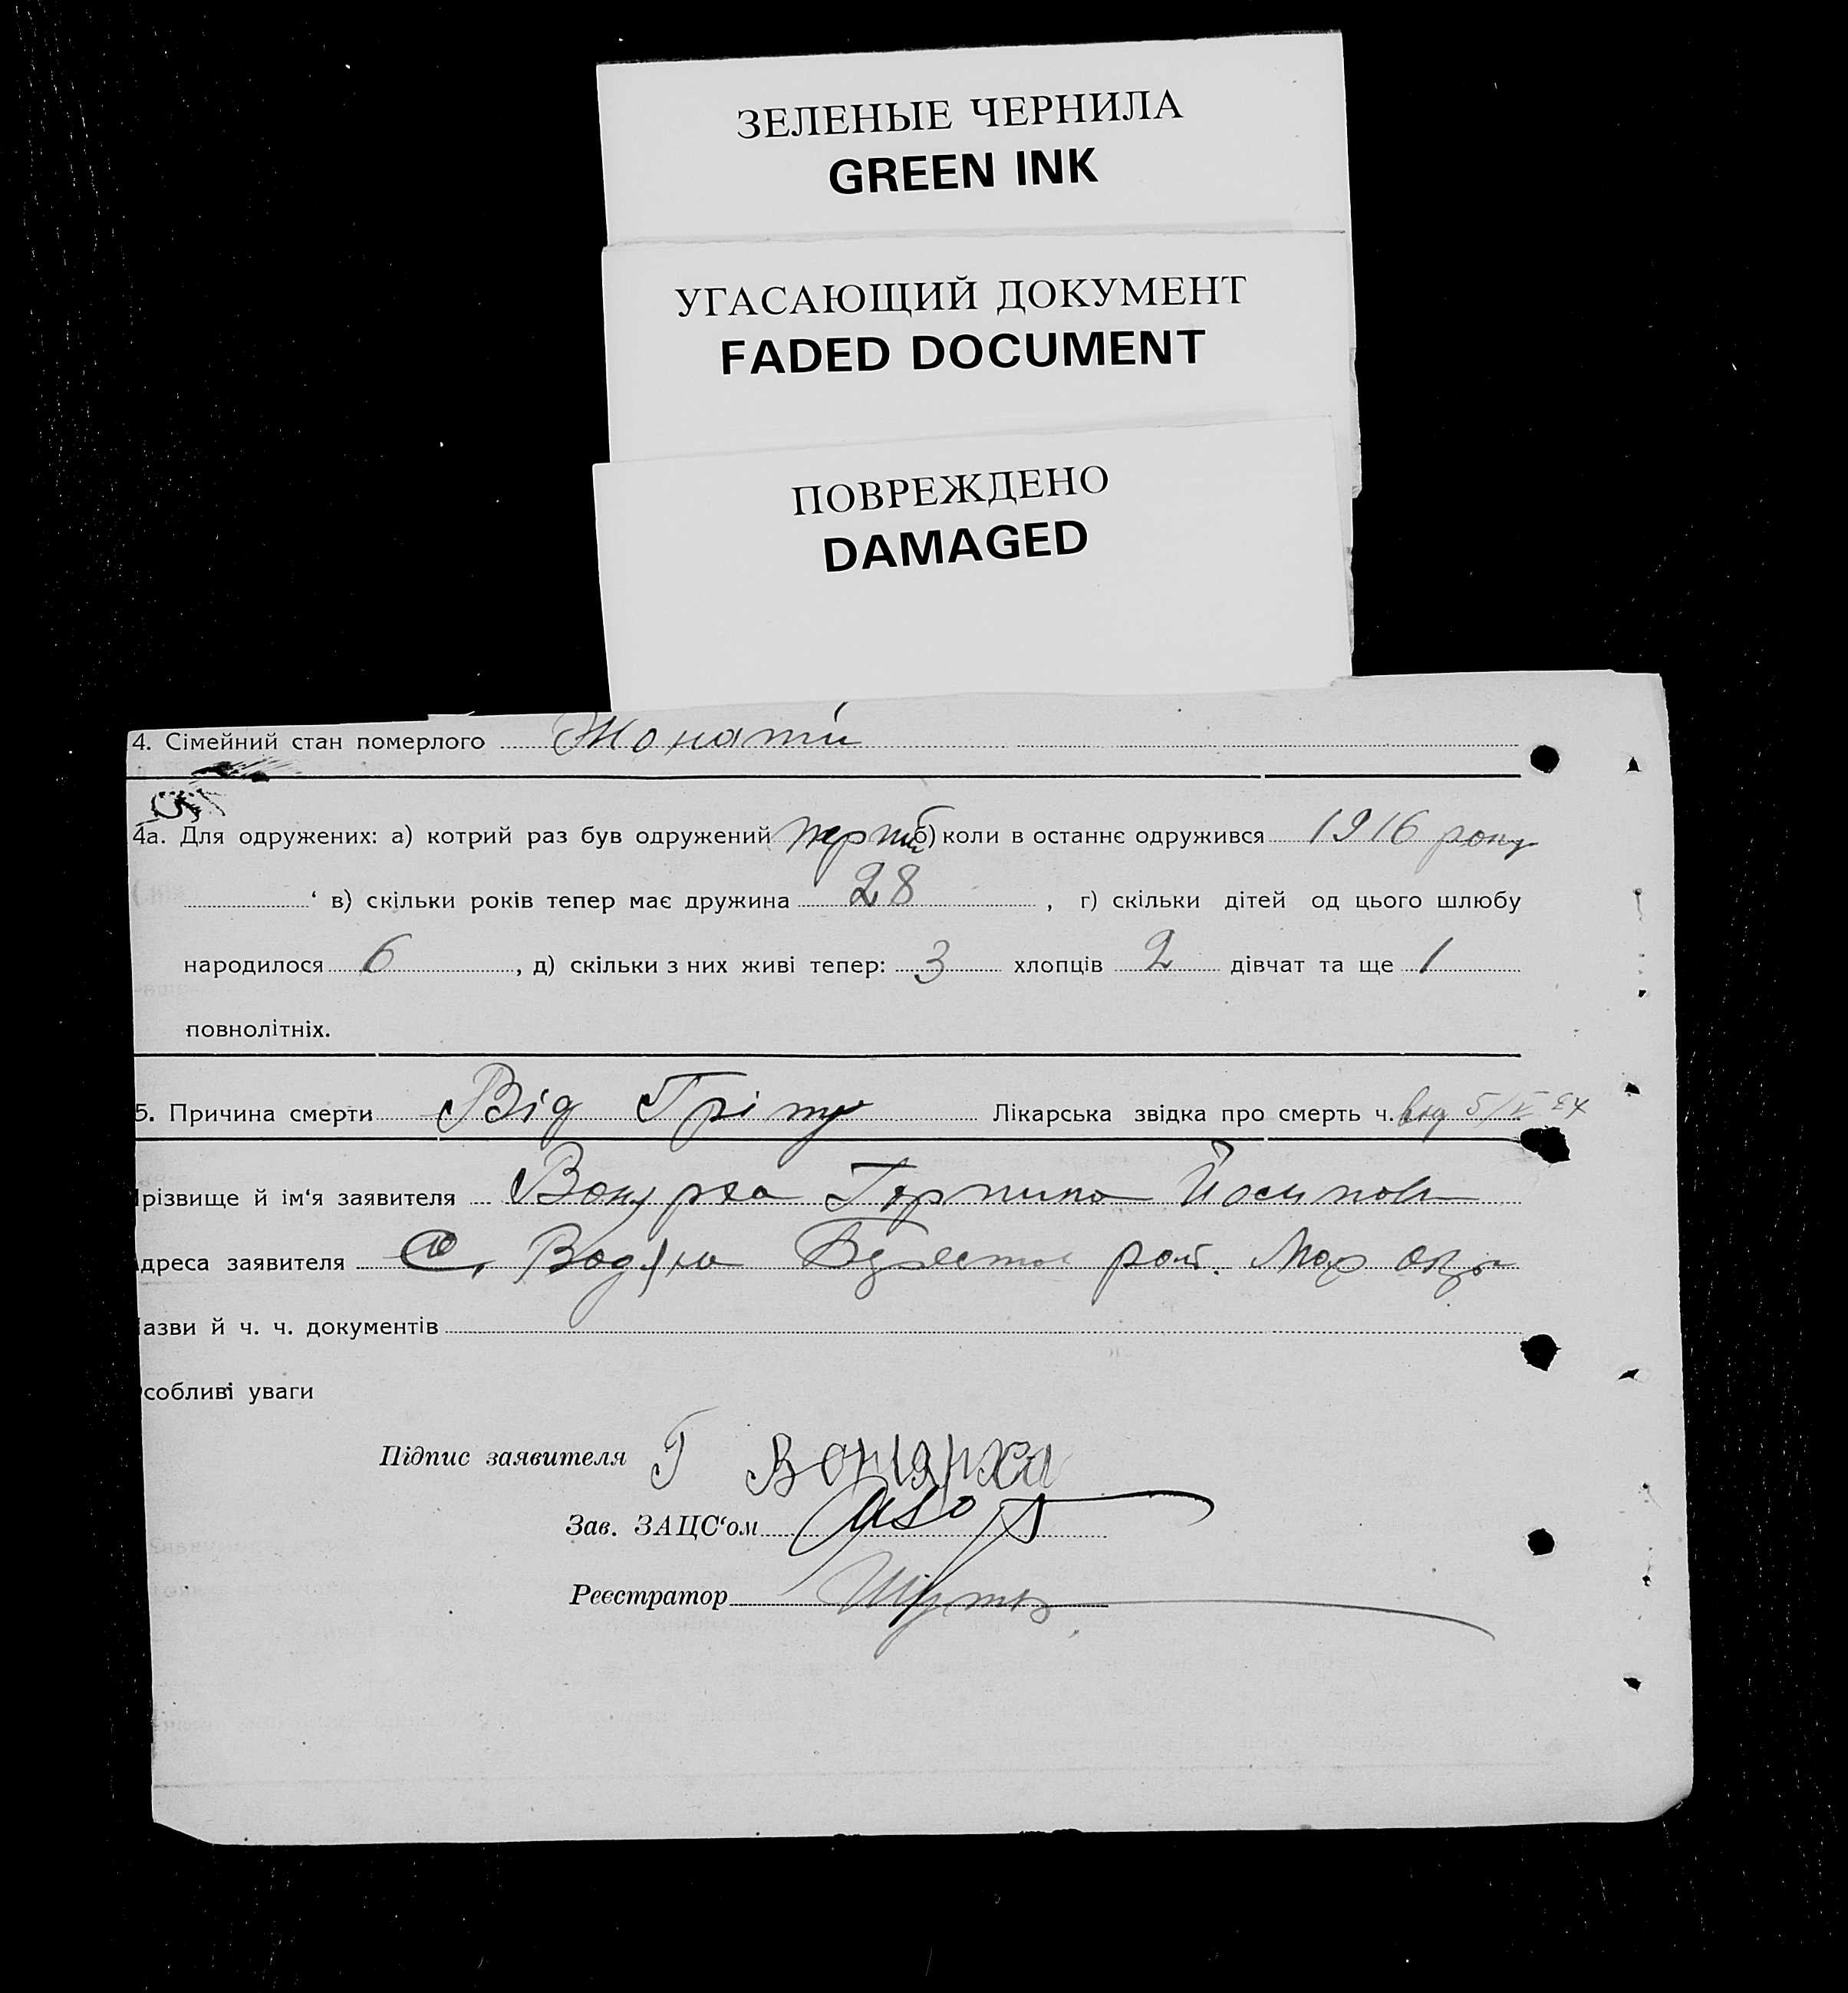 ЗЕЛЕНЫЕ ЧЕРНИЛА
GREEN INK
УГАСАЮЩИЙ ДОКУМЕНТ
FADED DOCUMENT
ПОВРЕЖДЕНО
DAMAGED
4. Сімейний стан померлого Жонати
4а. Для одружених: а) котрий раз був одружений б) коли в останнє одружився 1916 року
в) скільки років тепер має дружина 28, г) скільки дітей од цього шлюбу
народилося 6, д) скільки з них живі тепер: 3 хлопців 2 дівчат та ще 1
повнолітніх.
5. Причина смерти Від Гріпу Лікарська звідка про смерть ч. від 5/V
різвище й ім‘я заявителя Горпина
дреса заявителя с. Водяна
азви й ч. ч. документів
собливі уваги
Підпис заявителя Г
Зав. ЗАЦС‘ом
Реєстратор